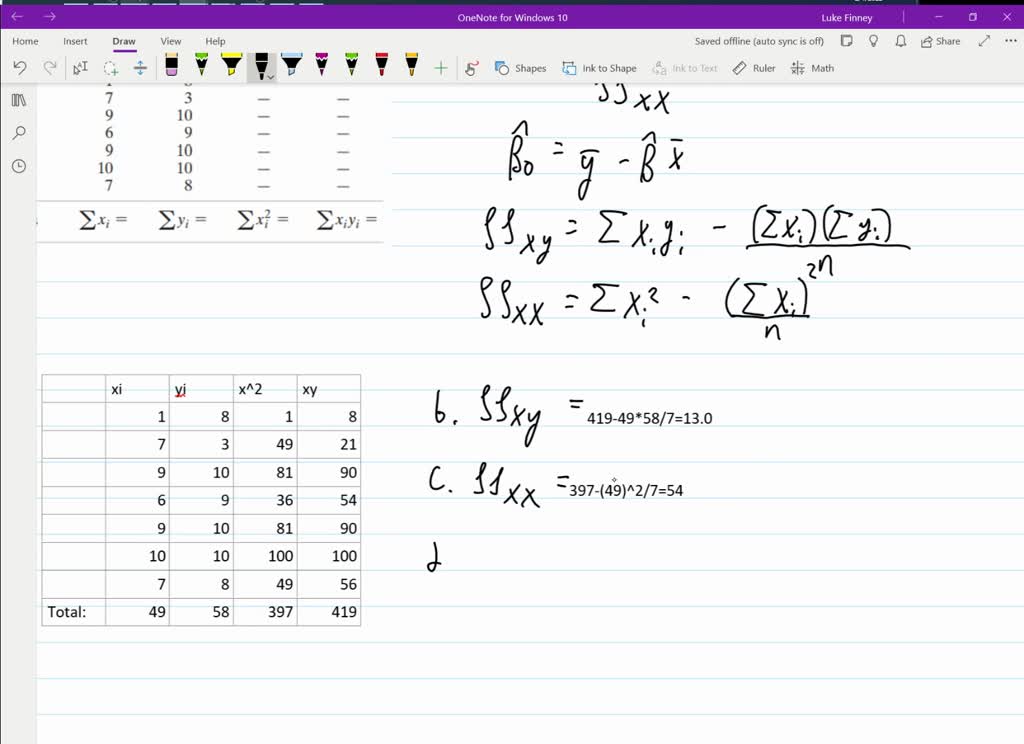 OneNote for Windows 10
Luke Finney
Home Insert Draw View Help
Saved offline (auto sync is off)
Share
Shapes Ink to Shape Ink to Text Ruler Math
7 3 — —
9 10 — —
6 9 — —
9 10 — —
10 10 — —
7 8 — —
∑xᵢ = ∑yᵢ = ∑xᵢ² = ∑xᵢyᵢ =
SSxx
β̂₀ = ȳ - β̂ x̄
SSxy = Σ xᵢyᵢ - (Σxᵢ)(Σyᵢ)
n
SSxx = Σ xᵢ² - (Σ xᵢ)²
n
xi yi x^2 xy
1 8 1 8
7 3 49 21
9 10 81 90
6 9 36 54
9 10 81 90
10 10 100 100
7 8 49 56
Total: 49 58 397 419
b. SSxy = 419-49*58/7=13.0
c. SSxx = 397-(49)^2/7=54
d